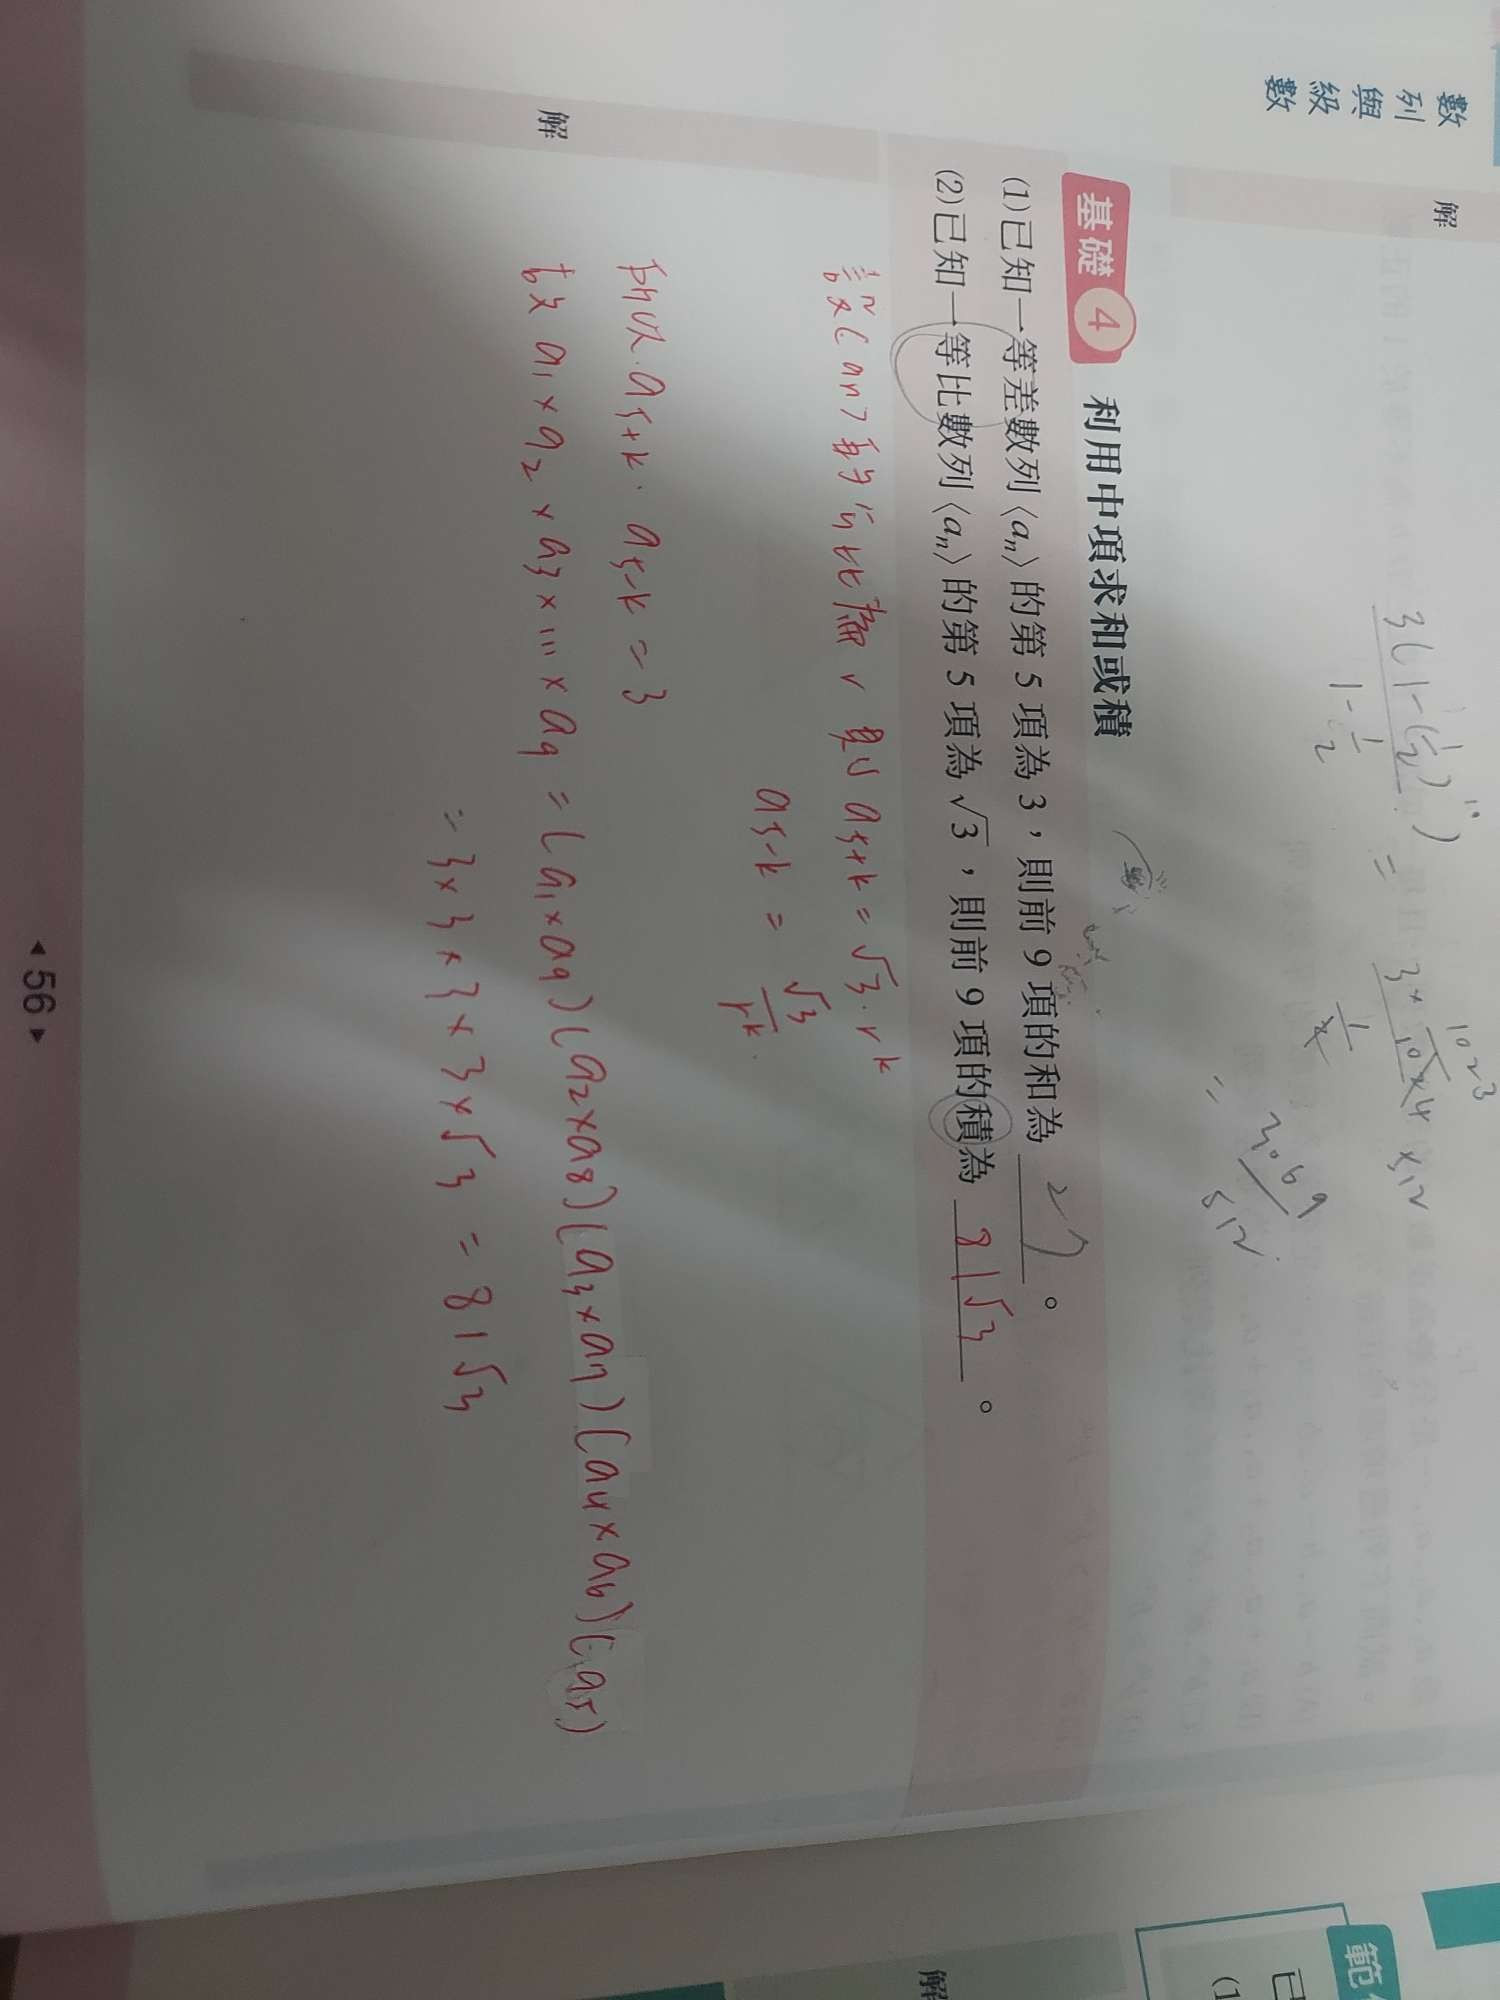 數列與級數
解
3(1-(1/2)^10)
1-1/2
=
3×1023/1024
1/2
×2
= 3069/512
基礎 4 利用中項求和或積
(1)已知一等差數列⟨aₙ⟩的第 5 項為 3,則前 9 項的和為 27 。
(2)已知一等比數列⟨aₙ⟩的第 5 項為 √3 ,則前 9 項的積為 81√3 。
解
設⟨an⟩的公比為 r 則 a5+k = √3·r^k
a5-k = √3/r^k
所以 a5+k · a5-k = 3
故 a1×a2×a3×…×a9 = (a1×a9)(a2×a8)(a3×a7)(a4×a6)(a5)
= 3×3×3×3×√3 = 81√3
◂ 56 ▸
範
已
(1
解